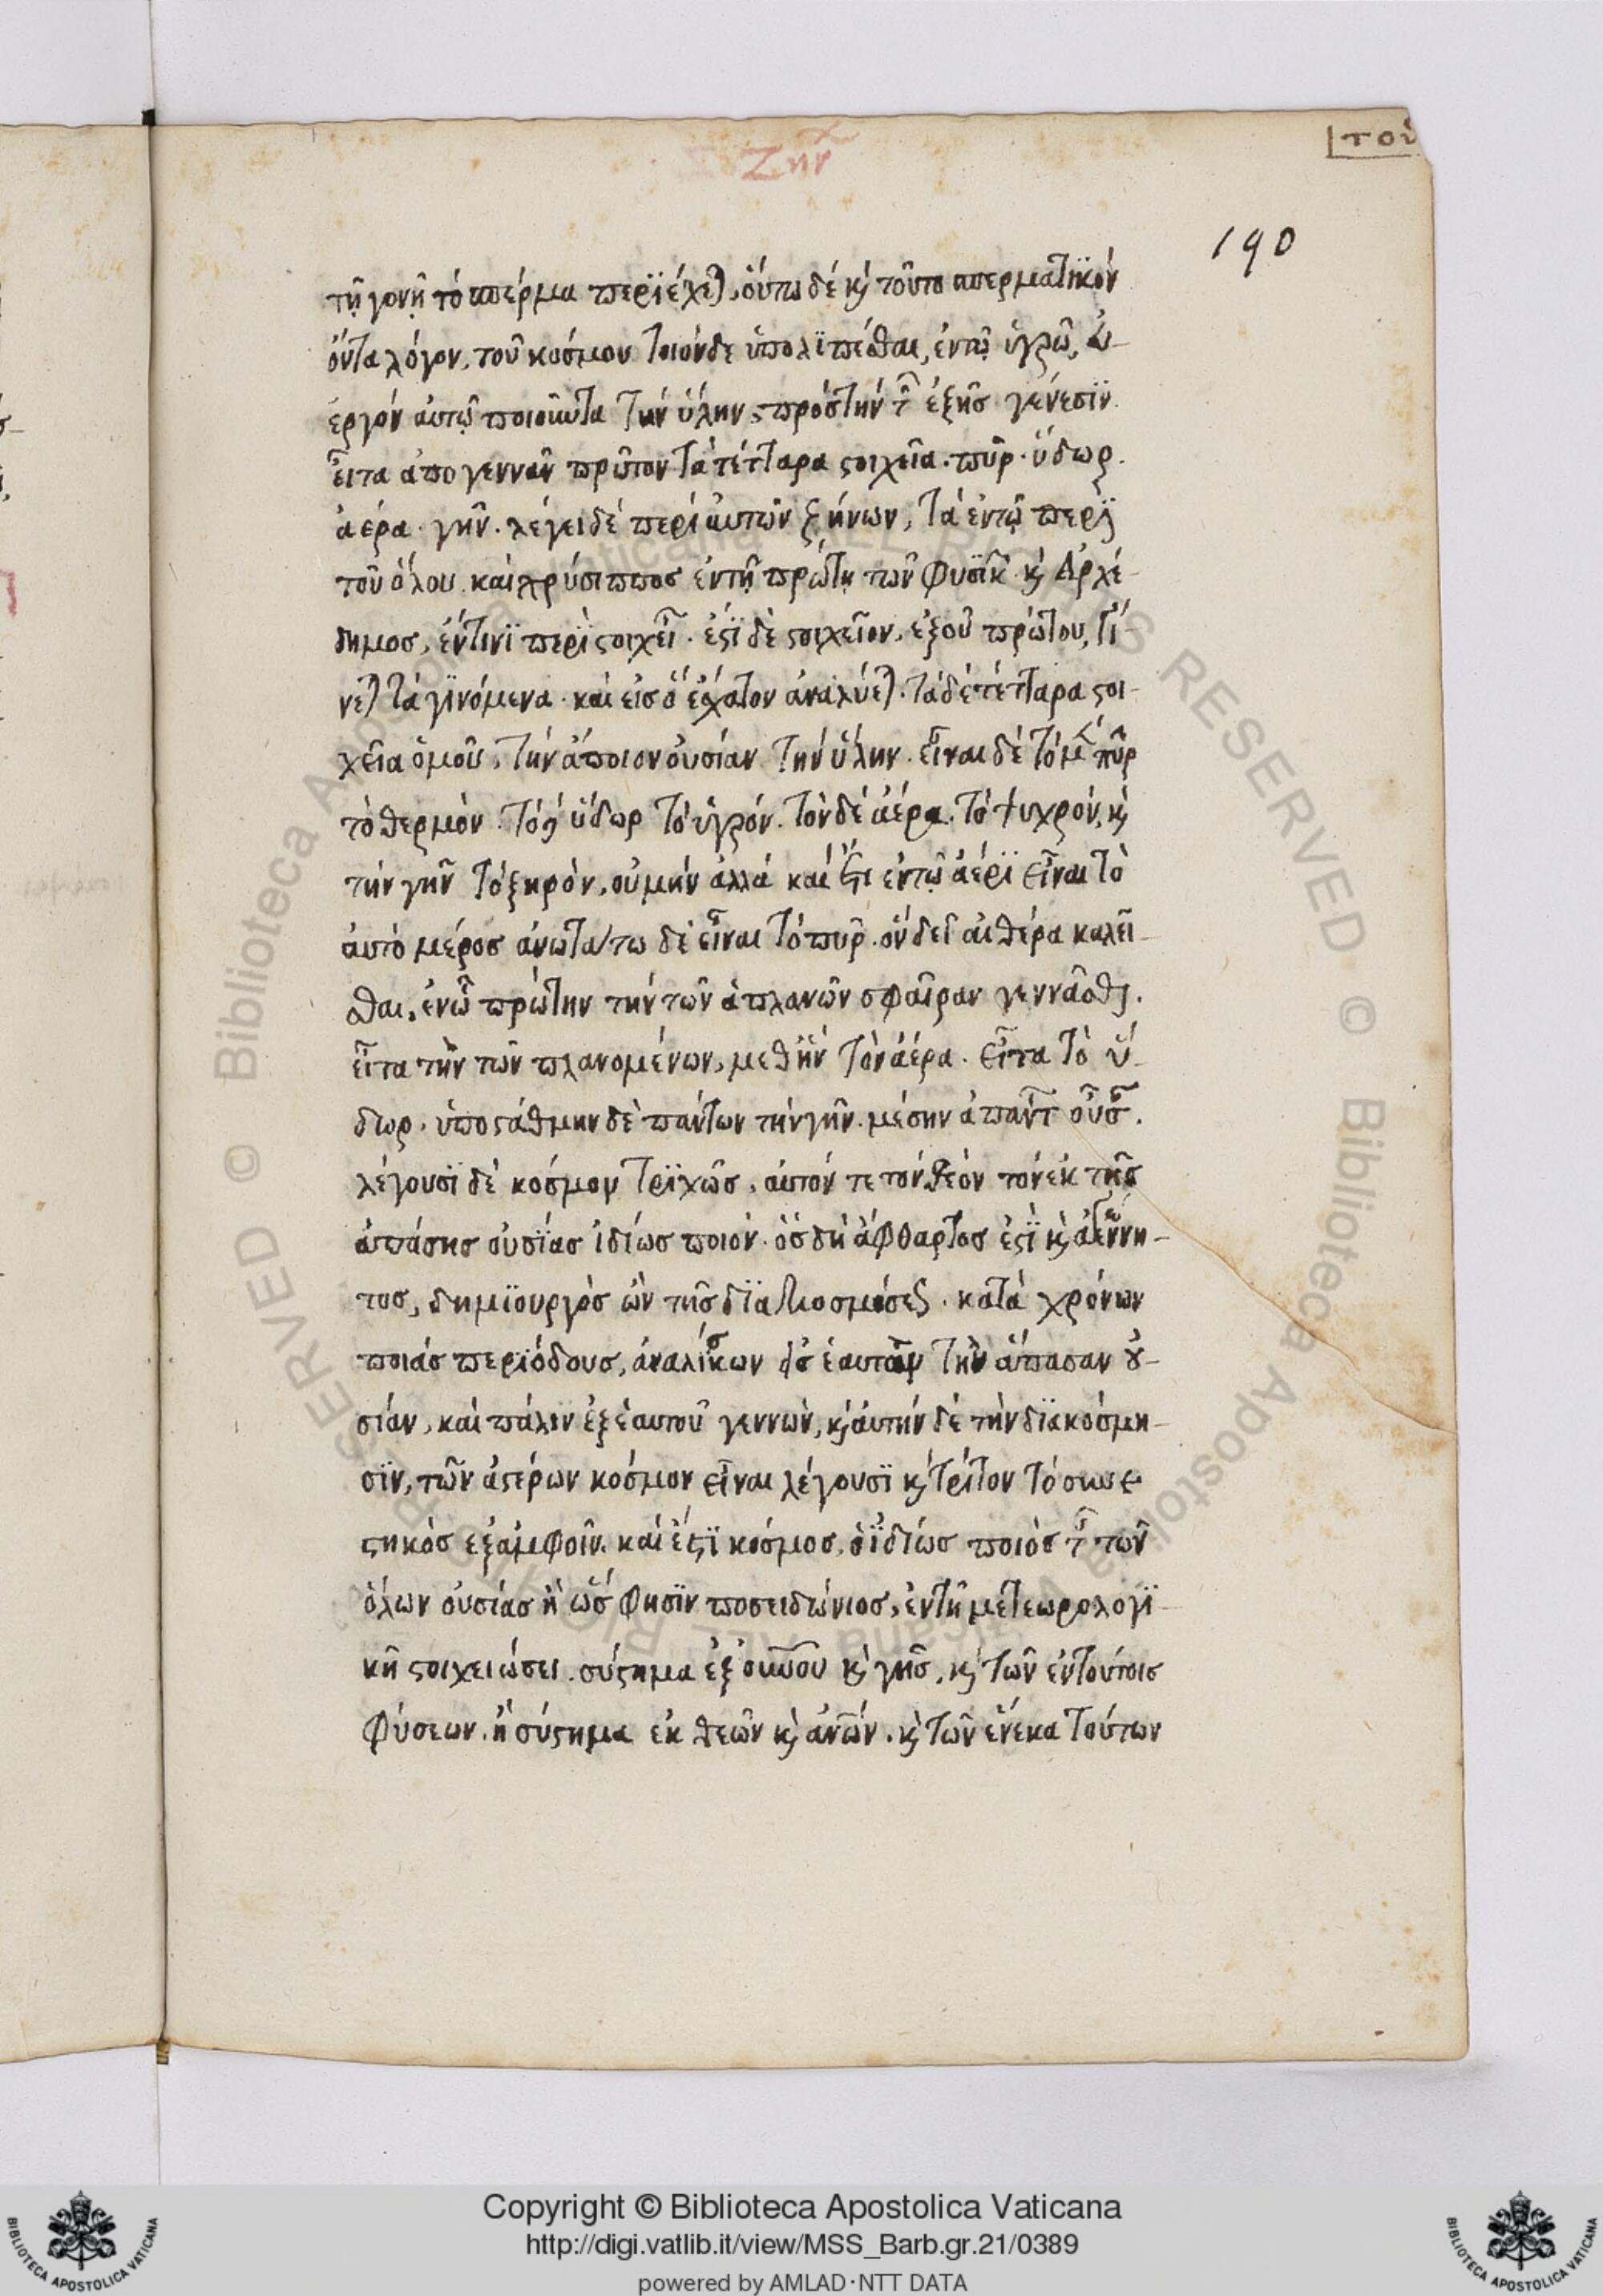 Ζήν
τοῦ
190
τῇ γονῇ τὸ σπέρμα περϊέχεται, οὕτω δέ καὶ τοῦτο σπερματϊκόν
ὄντα λόγον, τοῦ κόσμου τοιόνδε ὑπολϊπέσθαι, ἐν τῷ ὑγρῶ, εὐ-
εργόν ἀυτῷ ποιοῦντα τήν ὕλην, πρός τήν τῶν ἑξῆς γένεσϊν.
εἶτα ἀπογεννᾶν πρῶτον τὰ τέτταρα στοιχεῖα. πῦρ. ὕδωρ.
ἀέρα. γῆν. λέγει δέ περί ἀυτῶν ζήνων, τά ἐν τῷ περῒ
τοῦ ὅλου. καὶ χρύσιππος ἐν τῇ πρώτῃ τῶν Φυσϊκῶν. καὶ Ἀρχέ-
δημος, ἔν τινϊ περῒ στοιχείων. ἔστϊ δὲ στοιχεῖον, ἐξ οὗ πρώτου, γί-
νεται τὰ γϊνόμενα. καὶ εἰς ὅ ἔσχατον ἀναλύεται. τὰ δέ τέτταρα στοι-
χεῖα ὁμοῦ, τήν ἄποιον οὐσίαν τήν ὕλην. εἶναι δὲ τό μὲν πῦρ
τὸ θερμὸν. τό δὲ ὕδωρ τό ὑγρόν. τὸν δέ ἀέρα. τό ψυχρόν, καὶ
τήν γῆν τό ξηρὸν, οὐ μήν ἀλλά καί ἔτι ἐν τῷ ἀέρϊ εἶναι τὸ
ἀυτὸ μέρος ἀνωτάτω δὲ εἶναι τό πῦρ. ὅν δεῖ αἰθέρα καλεῖ-
σθαι, ἐν ᾧ πρώτην τήν τῶν ἀπλανῶν σφαῖραν γεννᾶσθαι.
εἶτα τὴν τῶν πλανομένων, μεθ ἥν τὸν ἀέρα. εἶτα τὸ ὕ-
δωρ. ὑποστάθμην δὲ πάντων τήν γῆν. μέσην ἁπάντων οὖσαν.
λέγουσϊ δὲ κόσμον τρϊχῶς, ἀυτόν τε τόν θεόν τόν ἐκ τῆς
ἁπάσης οὐσίας ἰδίως ποιόν. ὅς δή ἄφθαρτος ἐστῒ καὶ ἀγέννη-
τος, δημϊουργὸς ὢν τῆς δϊακοσμήσεως. κατὰ χρόνων
ποιάς περϊόδους, ἀναλίσκων εἰς ἑαυτὸν τὴν ἅπασαν οὐ-
σίαν, καὶ πάλιν ἐξ ἑαυτοῦ γεννῶν, καὶ ἀυτήν δέ τὴν δϊακόσμη-
σϊν, τῶν ἀστέρων κόσμον εἶναι λέγουσϊ καὶ τρίτον τό συνε
στηκὸς ἐξ ἀμφοῖν. καὶ ἔστϊ κόσμος, ὁ ἰδίως ποιός τῆς τῶν
ὅλων οὐσίας ἢ ὥς φησϊν ποσειδώνιος, ἐν τῇ μετεωρολογϊ
κῇ στοιχειώσει. σύστημα ἐξ οὐνου καὶ γῆς, καὶ τῶν ἐν τούτοις
φύσεων. ἢ σύστημα ἐκ θεῶν καὶ ἀνων. καὶ τῶν ἕνεκα τούτων
Copyright © Biblioteca Apostolica Vaticana
http://digi.vatlib.it/view/MSS_Barb.gr.21/0389
powered by AMLAD·NTT DATA